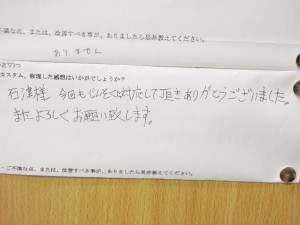 ご不満な点、または、改善すべき事が、ありましたら是非教えてください。
ありません
カスタム、修理した感想はいかがでしょうか？
石津様 今回もじんそくな対応して頂きありがとうございました。
またよろしくお願い致します。
・ご不満な点、または、改善すべき事が、ありましたら是非教えてください。